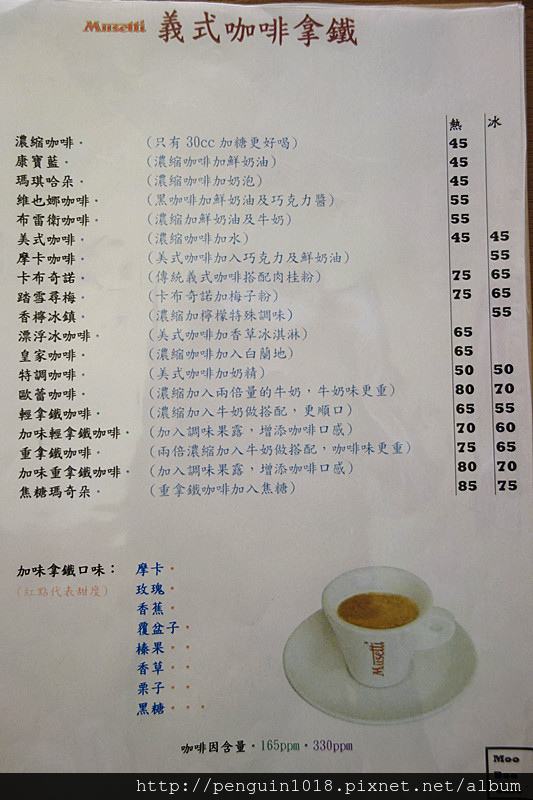 Musetti 義式咖啡拿鐵
熱 冰
濃縮咖啡・ (只有30cc加糖更好喝) 45
康寶藍・ (濃縮咖啡加鮮奶油) 45
瑪琪哈朵・ (濃縮咖啡加奶泡) 45
維也娜咖啡・ (黑咖啡加鮮奶油及巧克力醬) 55
布雷衛咖啡・ (濃縮加鮮奶油及牛奶) 55
美式咖啡・ (濃縮咖啡加水) 45 45
摩卡咖啡・ (美式咖啡加入巧克力及鮮奶油) 55
卡布奇諾・ (傳統義式咖啡搭配肉桂粉) 75 65
踏雪尋梅・ (卡布奇諾加梅子粉) 75 65
香檸冰鎮・ (濃縮加檸檬特殊調味) 55
漂浮冰咖啡・ (美式咖啡加香草冰淇淋) 65
皇家咖啡・ (濃縮咖啡加入白蘭地) 65
特調咖啡・ (美式咖啡加奶精) 50 50
歐蕾咖啡・ (濃縮加入兩倍量的牛奶,牛奶味更重) 80 70
輕拿鐵咖啡・ (濃縮加入牛奶做搭配,更順口) 65 55
加味輕拿鐵咖啡・ (加入調味果露,增添咖啡口感) 70 60
重拿鐵咖啡・ (兩倍濃縮加入牛奶做搭配,咖啡味更重) 75 65
加味重拿鐵咖啡・ (加入調味果露,增添咖啡口感) 80 70
焦糖瑪奇朵・ (重拿鐵咖啡加入焦糖) 85 75
加味拿鐵口味： 摩卡・
(紅點代表甜度) 玫瑰・
香蕉・
覆盆子・
榛果・・
香草・・
栗子・・
黑糖・・・
Musetti
咖啡因含量・165ppm・330ppm
Moo
http://penguin1018.pixnet.net/album